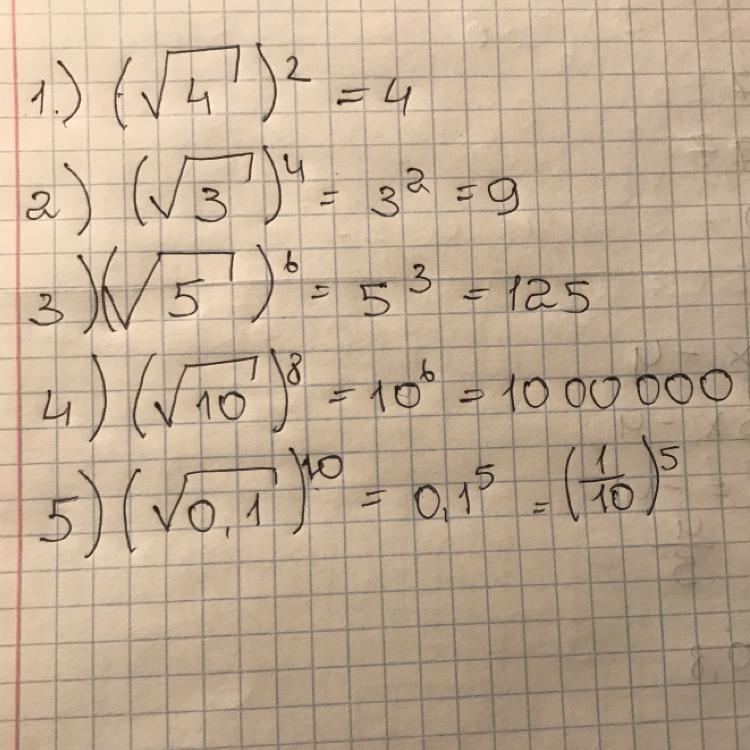 1.) (√4)² = 4
2) (√3)⁴ = 3² = 9
3) (√5)⁶ = 5³ = 125
4) (√10)⁸ = 10⁶ = 1000000
5) (√0,1)¹⁰ = 0,1⁵ = (1/10)⁵